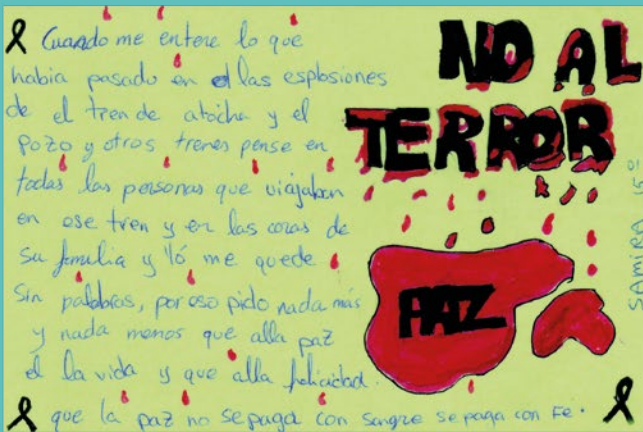 Cuando me entere lo que
habia pasado en las esplosiones
de el tren de atocha y el
Pozo y otros trenes pense en
todas las personas que viajaban
en ese tren y en las caras de
su familia y Yó me quede
sin palabras, por eso pido nada más
y nada menos que alla paz
el la vida y que alla felicidad.
que la paz no se paga con sangre se paga con Fe.
NO AL
TERROR
PAZ
SAMIRA